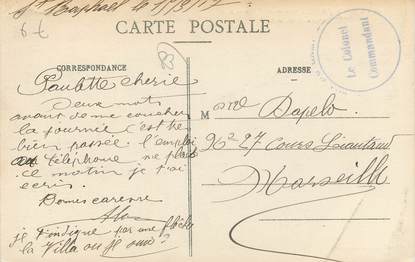 St Raphael le 11/3/17
6 €
CARTE POSTALE
83
CORRESPONDANCE
ADRESSE
Le Colonel
Commandant
Paulette cherie
Deux mots
avant de me coucher
la journée c'est tre
bien passée. l'emploi
au téléphone me plait
ce matin je t'ai
ecris.
Bonnes caresse
je t'indique par une flèche
la Villa ou je
M me Dapelo
27 Cours Lieutaud
Marseille